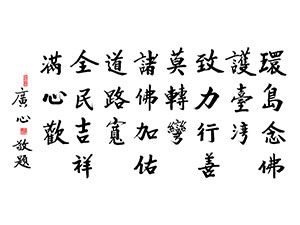 環島念佛
護臺灣
致力行善
莫轉彎
諸佛加佑
道路寬
全民吉祥
滿心歡
廣心敬題